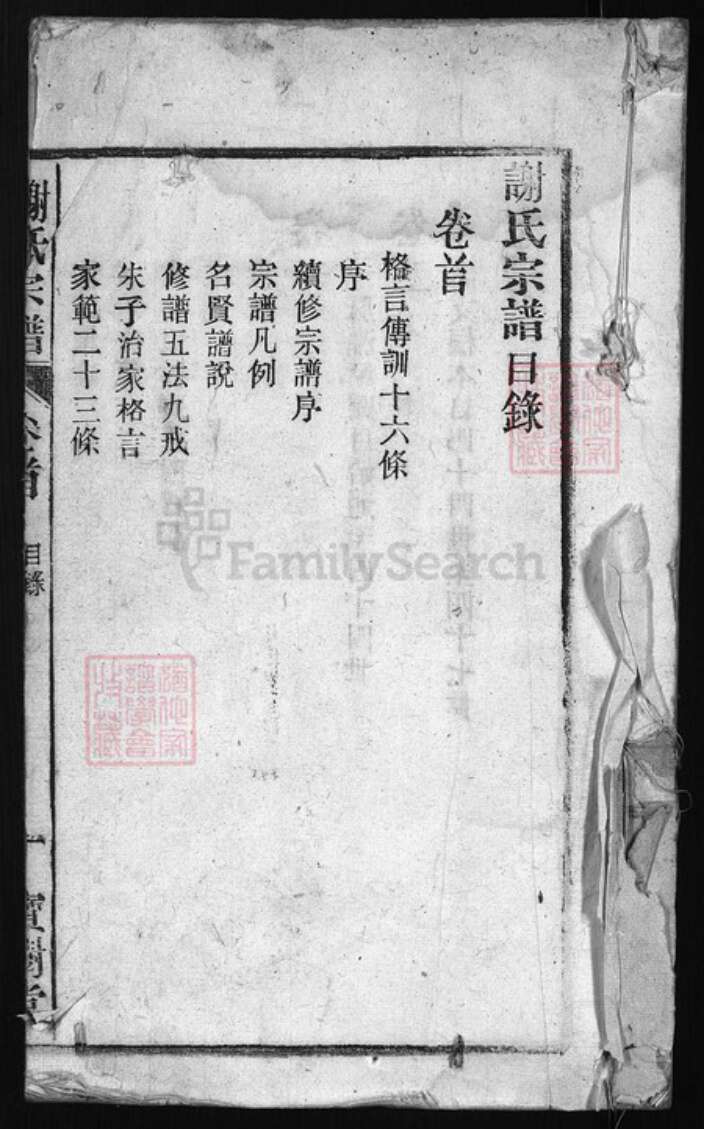 謝氏宗譜目錄
卷首
格言傳訓十六條
序
續修宗譜序
宗譜凡例
名賢譜說
修譜五法九戒
朱子治家格言
家範二十三條
謝氏宗譜
卷首
目錄
一
寶樹堂
FamilySearch